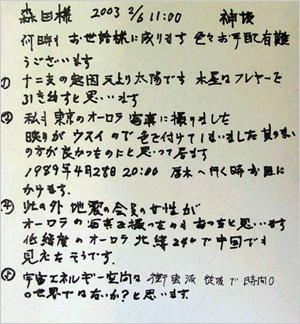 森田様 2003 2/6 11:00 神坂
何時も お世話様に成ります 色々お手配有難
うございます
① 十二支の起因 天より太陽です 木星はフレヤーを
引き出すと思います
② 私も東京のオーロラ 写真に撮りました
映りが ウスイ ので 色を付けてしまいました 其のまま
の方が良かったものにと思って居ます
1989年4月28日 20:00 厚木へ行く時 お目に
かけます。
④ 此の外 地震の会員の女性が
オーロラの写真を撮ったものも あったと思います
低緯度のオーロラ 北緯24°で中国でも
見えたそうです
宇宙エネルギー空間は 衝突波 縦波で 時間0
0世界ではないか?と思います.